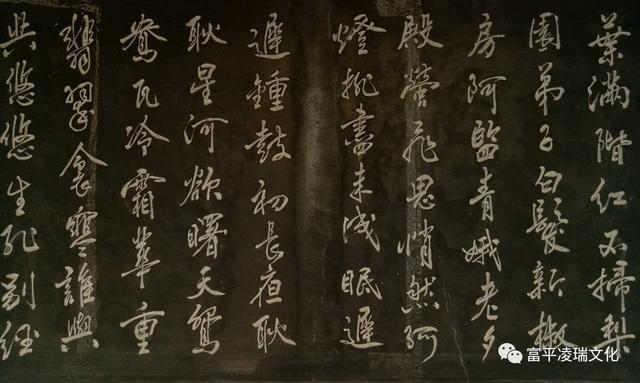 葉滿階紅不掃梨
園弟子白髮新椒
房阿監青娥老夕
殿螢飛思悄然孤
燈挑盡未成眠遲
遲鍾鼓初長夜耿
耿星河欲曙天鴛
鴦瓦冷霜華重
翡翠衾寒誰與
共悠悠生死別經
富平凌瑞文化